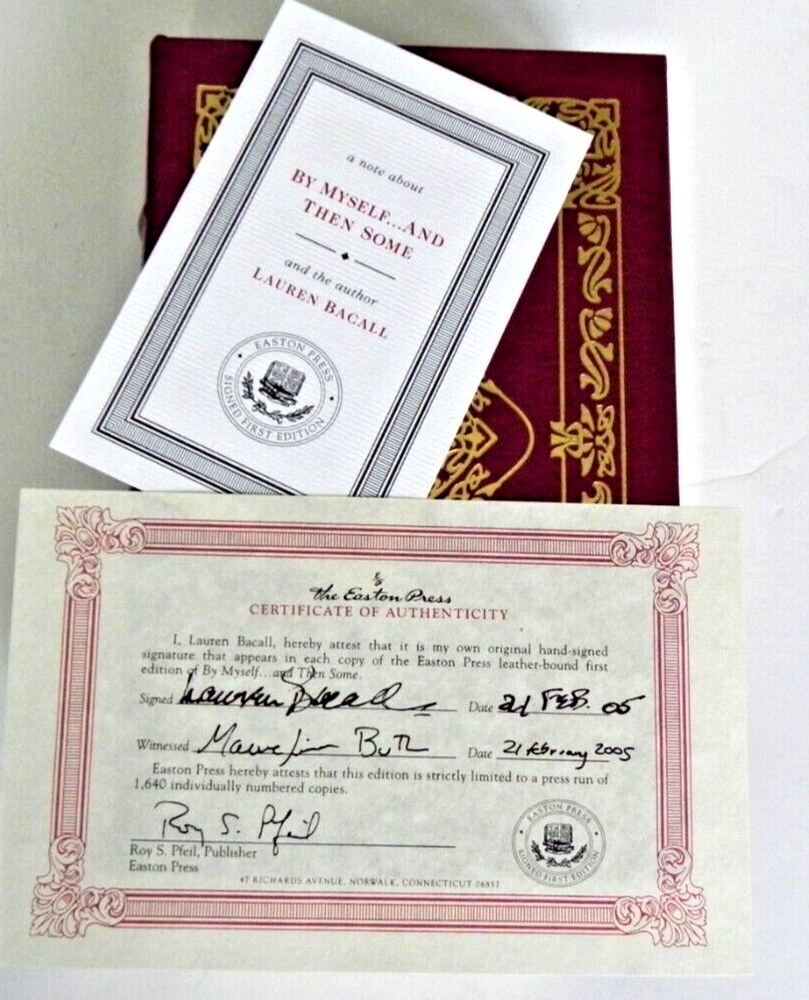 a note about
BY MYSELF...AND
THEN SOME
and the author
LAUREN BACALL
EASTON PRESS
SIGNED FIRST EDITION
the Easton Press
CERTIFICATE OF AUTHENTICITY
I, Lauren Bacall, hereby attest that it is my own original hand-signed
signature that appears in each copy of the Easton Press leather-bound first
edition of By Myself...and Then Some.
Signed Lauren Bacall Date 21 FEB. 05
Witnessed Date 21 February 2005
Easton Press hereby attests that this edition is strictly limited to a press run of
1,640 individually numbered copies.
Roy S. Pfeil
Roy S. Pfeil, Publisher
Easton Press
EASTON PRESS
SIGNED FIRST EDITION
47 RICHARDS AVENUE, NORWALK, CONNECTICUT 06857